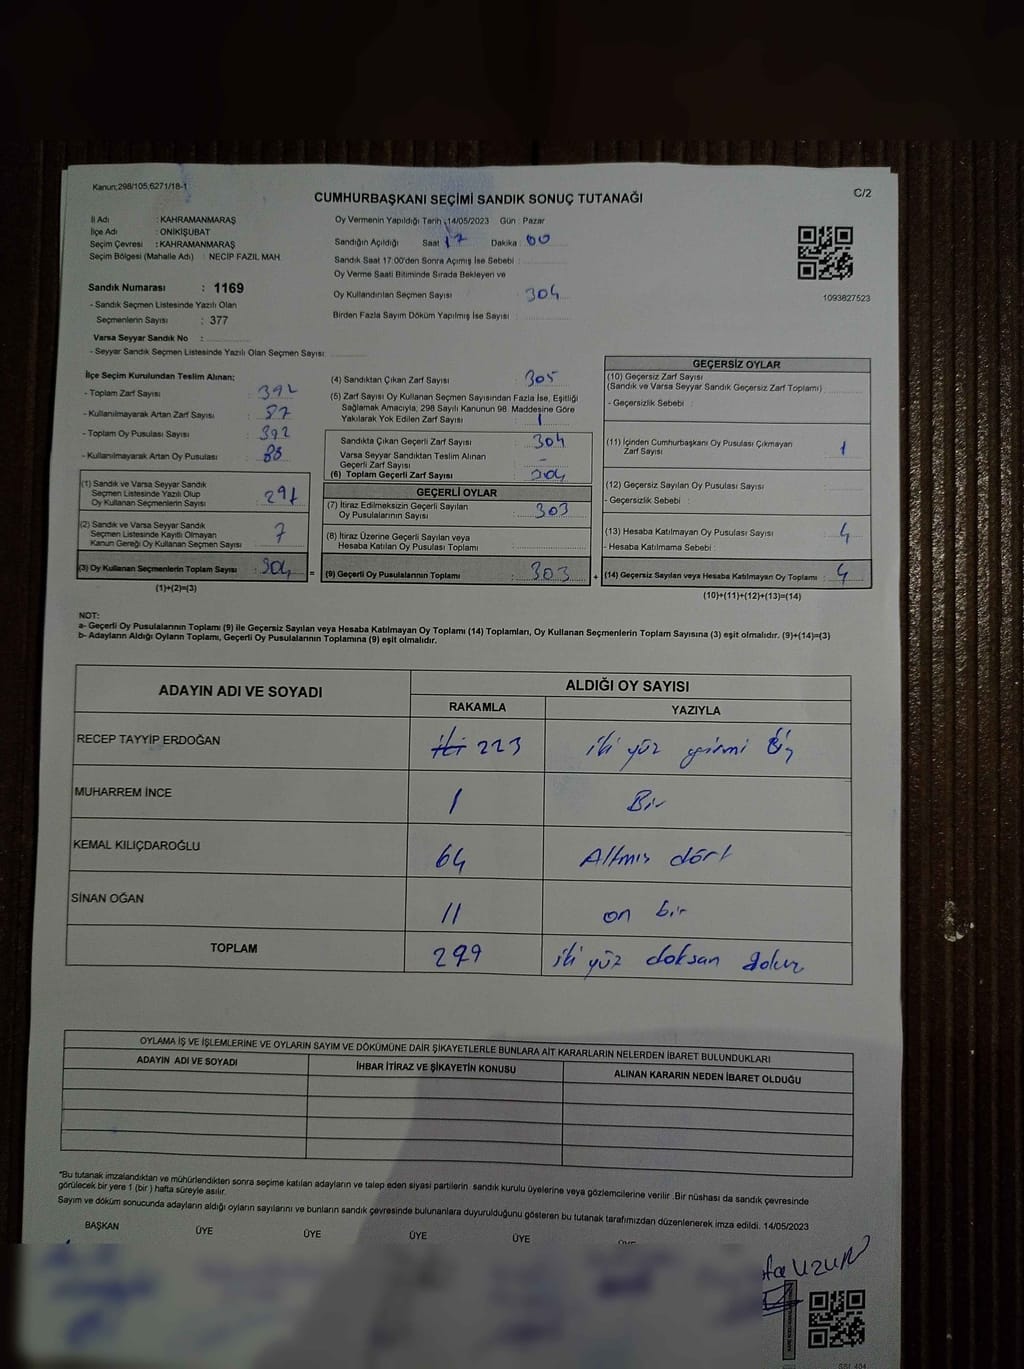 Kanun;298/105,6271/18-1
C/2
CUMHURBAŞKANI SEÇİMİ SANDIK SONUÇ TUTANAĞI
İl Adı : KAHRAMANMARAŞ
İlçe Adı : ONİKİŞUBAT
Seçim Çevresi : KAHRAMANMARAŞ
Seçim Bölgesi (Mahalle Adı) : NECİP FAZIL MAH
Sandık Numarası : 1169
- Sandık Seçmen Listesinde Yazılı Olan
Seçmenlerin Sayısı : 377
Varsa Seyyar Sandık No :
- Seyyar Sandık Seçmen Listesinde Yazılı Olan Seçmen Sayısı:
Oy Vermenin Yapıldığı Tarih : 14/05/2023 Gün : Pazar
Sandığın Açıldığı Saat 17 Dakika : 00
Sandık Saat 17:00'den Sonra Açımış İse Sebebi :
Oy Verme Saati Bitiminde Sırada Bekleyen ve
Oy Kullandırılan Seçmen Sayısı : 304
Birden Fazla Sayım Döküm Yapılmış İse Sayısı :
1093827523
İlçe Seçim Kurulundan Teslim Alınan;
- Toplam Zarf Sayısı : 392
- Kullanılmayarak Artan Zarf Sayısı : 87
- Toplam Oy Pusulası Sayısı : 392
- Kullanılmayarak Artan Oy Pusulası : 88
(1) Sandık ve Varsa Seyyar Sandık
Seçmen Listesinde Yazılı Olup
Oy Kullanan Seçmenlerin Sayısı : 297
(2) Sandık ve Varsa Seyyar Sandık
Seçmen Listesinde Kayıtlı Olmayan
Kanun Gereği Oy Kullanan Seçmen Sayısı : 7
(3) Oy Kullanan Seçmenlerin Toplam Sayısı : 304 =
(1)+(2)=(3)
(4) Sandıktan Çıkan Zarf Sayısı : 305
(5) Zarf Sayısı Oy Kullanan Seçmen Sayısından Fazla İse, Eşitliği
Sağlamak Amacıyla; 298 Sayılı Kanunun 98. Maddesine Göre
Yakılarak Yok Edilen Zarf Sayısı : 1
Sandıkta Çıkan Geçerli Zarf Sayısı : 304
Varsa Seyyar Sandıktan Teslim Alınan
Geçerli Zarf Sayısı : -
(6) Toplam Geçerli Zarf Sayısı : 304
GEÇERLİ OYLAR
(7) İtiraz Edilmeksizin Geçerli Sayılan
Oy Pusulalarının Sayısı : 303
(8) İtiraz Üzerine Geçerli Sayılan veya
Hesaba Katılan Oy Pusulası Toplamı :
(9) Geçerli Oy Pusulalarının Toplamı : 303 +
GEÇERSİZ OYLAR
(10) Geçersiz Zarf Sayısı
(Sandık ve Varsa Seyyar Sandık Geçersiz Zarf Toplamı)
- Geçersizlik Sebebi :
(11) İçinden Cumhurbaşkanı Oy Pusulası Çıkmayan
Zarf Sayısı : 1
(12) Geçersiz Sayılan Oy Pusulası Sayısı :
- Geçersizlik Sebebi :
(13) Hesaba Katılmayan Oy Pusulası Sayısı : 4
- Hesaba Katılmama Sebebi :
(14) Geçersiz Sayılan veya Hesaba Katılmayan Oy Toplamı : 4
(10)+(11)+(12)+(13)=(14)
NOT:
a- Geçerli Oy Pusulasının Toplamı (9) ile Geçersiz Sayılan veya Hesaba Katılmayan Oy Toplamı (14) Toplamları, Oy Kullanan Seçmenlerin Toplam Sayısına (3) eşit olmalıdır. (9)+(14)=(3)
b- Adayların Aldığı Oyların Toplamı, Geçerli Oy Pusulalarının Toplamına (9) eşit olmalıdır.
ADAYIN ADI VE SOYADI
ALDIĞI OY SAYISI
RAKAMLA YAZIYLA
RECEP TAYYİP ERDOĞAN iki 223 iki yüz yirmi üç
MUHARREM İNCE 1 Bir
KEMAL KILIÇDAROĞLU 64 Altmış dört
SİNAN OĞAN 11 on bir
TOPLAM 299 iki yüz doksan dokuz
OYLAMA İŞ VE İŞLEMLERİNE VE OYLARIN SAYIM VE DÖKÜMÜNE DAİR ŞİKAYETLERLE BUNLARA AİT KARARLARIN NELERDEN İBARET BULUNDUKLARI
ADAYIN ADI VE SOYADI İHBAR İTİRAZ VE ŞİKAYETİN KONUSU ALINAN KARARIN NEDEN İBARET OLDUĞU
*Bu tutanak imzalandıktan ve mühürlendikten sonra seçime katılan adayların ve talep eden siyasi partilerin sandık kurulu üyelerine veya gözlemcilerine verilir. Bir nüshası da sandık çevresinde
görülecek bir yere 1 (bir) hafta süreyle asılır.
Sayım ve döküm sonucunda adayların aldığı oyların sayılarını ve bunların sandık çevresinde bulunanlara duyurulduğunu gösteren bu tutanak tarafımızdan düzenlenerek imza edildi. 14/05/2023
BAŞKAN ÜYE ÜYE ÜYE ÜYE
UZUN